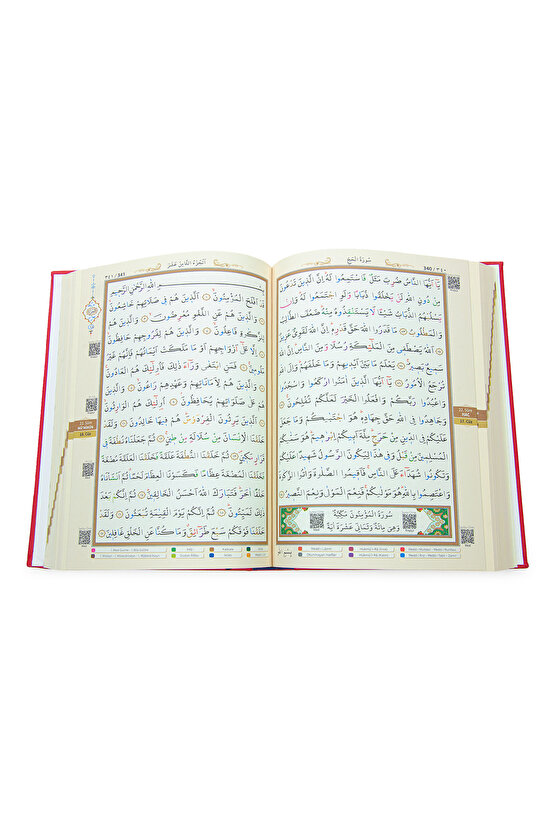 سُورَةُ الْحَجِّ
340 / ٣٤٠
يَٓا اَيُّهَا النَّاسُ ضُرِبَ مَثَلٌ فَاسْتَمِعُوا لَهُ اِنَّ الَّذ۪ينَ تَدْعُونَ
مِنْ دُونِ اللّٰهِ لَنْ يَخْلُقُوا ذُبَابًا وَلَوِ اجْتَمَعُوا لَهُ وَاِنْ
يَسْلُبْهُمُ الذُّبَابُ شَيْـًٔا لَا يَسْتَنْقِذُوهُ مِنْهُ ضَعُفَ الطَّالِبُ
وَالْمَطْلُوبُ مَا قَدَرُوا اللّٰهَ حَقَّ قَدْرِه۪ اِنَّ اللّٰهَ لَقَوِيٌّ عَز۪يزٌ
اَللّٰهُ يَصْطَف۪ي مِنَ الْمَلٰٓئِكَةِ رُسُلًا وَمِنَ النَّاسِ اِنَّ اللّٰهَ
سَم۪يعٌ بَص۪يرٌ يَعْلَمُ مَا بَيْنَ اَيْد۪يهِمْ وَمَا خَلْفَهُمْ وَاِلَى اللّٰهِ
تُرْجَعُ الْاُمُورُ يَٓا اَيُّهَا الَّذ۪ينَ اٰمَنُوا ارْكَعُوا وَاسْجُدُوا
وَاعْبُدُوا رَبَّكُمْ وَافْعَلُوا الْخَيْرَ لَعَلَّكُمْ تُفْلِحُونَ
وَجَاهِدُوا فِي اللّٰهِ حَقَّ جِهَادِه۪ هُوَ اجْتَبٰيكُمْ وَمَا جَعَلَ
عَلَيْكُمْ فِي الدّ۪ينِ مِنْ حَرَجٍ مِلَّةَ اَب۪يكُمْ اِبْرٰه۪يمَ هُوَ سَمّٰيكُمُ
الْمُسْلِم۪ينَ مِنْ قَبْلُ وَف۪ي هٰذَا لِيَكُونَ الرَّسُولُ شَه۪يدًا عَلَيْكُمْ
وَتَكُونُوا شُهَدَٓاءَ عَلَى النَّاسِ فَاَق۪يمُوا الصَّلٰوةَ وَاٰتُوا الزَّكٰوةَ
وَاعْتَصِمُوا بِاللّٰهِ هُوَ مَوْلٰيكُمْ فَنِعْمَ الْمَوْلٰى وَنِعْمَ النَّص۪يرُ
سُورَةُ الْمُؤْمِنُونَ مَكِّيَّةٌ
وَهِيَ مِائَةٌ وَثَمَانِيَ عَشْرَةَ اٰيَةً
22. Sûre
HAC
17. Cüz
اَلْجُزْءُ الثَّامِنَ عَشَرَ
٣٤١ / 341
بِسْمِ اللّٰهِ الرَّحْمٰنِ الرَّح۪يمِ
قَدْ اَفْلَحَ الْمُؤْمِنُونَ اَلَّذ۪ينَ هُمْ ف۪ي صَلَاتِهِمْ خَاشِعُونَ
وَالَّذ۪ينَ هُمْ عَنِ اللَّغْوِ مُعْرِضُونَ وَالَّذ۪ينَ هُمْ
لِلزَّكٰوةِ فَاعِلُونَ وَالَّذ۪ينَ هُمْ لِفُرُوجِهِمْ حَافِظُونَ
اِلَّا عَلٰٓى اَزْوَاجِهِمْ اَوْ مَا مَلَكَتْ اَيْمَانُهُمْ فَاِنَّهُمْ غَيْرُ
مَلُوم۪ينَ فَمَنِ ابْتَغٰى وَرَٓاءَ ذٰلِكَ فَاُو۬لٰٓئِكَ هُمُ الْعَادُونَ
وَالَّذ۪ينَ هُمْ لِاَمَانَاتِهِمْ وَعَهْدِهِمْ رَاعُونَ وَالَّذ۪ينَ
هُمْ عَلٰى صَلَوَاتِهِمْ يُحَافِظُونَ اُو۬لٰٓئِكَ هُمُ الْوَارِثُونَ
اَلَّذ۪ينَ يَرِثُونَ الْفِرْدَوْسَ هُمْ ف۪يهَا خَالِدُونَ وَلَقَدْ
خَلَقْنَا الْاِنْسَانَ مِنْ سُلَالَةٍ مِنْ ط۪ينٍ ثُمَّ جَعَلْنَاهُ نُطْفَةً ف۪ي
قَرَارٍ مَك۪ينٍ ثُمَّ خَلَقْنَا النُّطْفَةَ عَلَقَةً فَخَلَقْنَا الْعَلَقَةَ مُضْغَةً
فَخَلَقْنَا الْمُضْغَةَ عِظَامًا فَكَسَوْنَا الْعِظَامَ لَحْمًا ثُمَّ اَنْشَأْنَاهُ
خَلْقًا اٰخَرَ فَتَبَارَكَ اللّٰهُ اَحْسَنُ الْخَالِق۪ينَ ثُمَّ اِنَّكُمْ بَعْدَ
ذٰلِكَ لَمَيِّتُونَ ثُمَّ اِنَّكُمْ يَوْمَ الْقِيٰمَةِ تُبْعَثُونَ وَلَقَدْ
خَلَقْنَا فَوْقَكُمْ سَبْعَ طَرَٓائِقَ وَمَا كُنَّا عَنِ الْخَلْقِ غَافِل۪ينَ
23. Sûre
MÜ'MİNÛN
18. Cüz